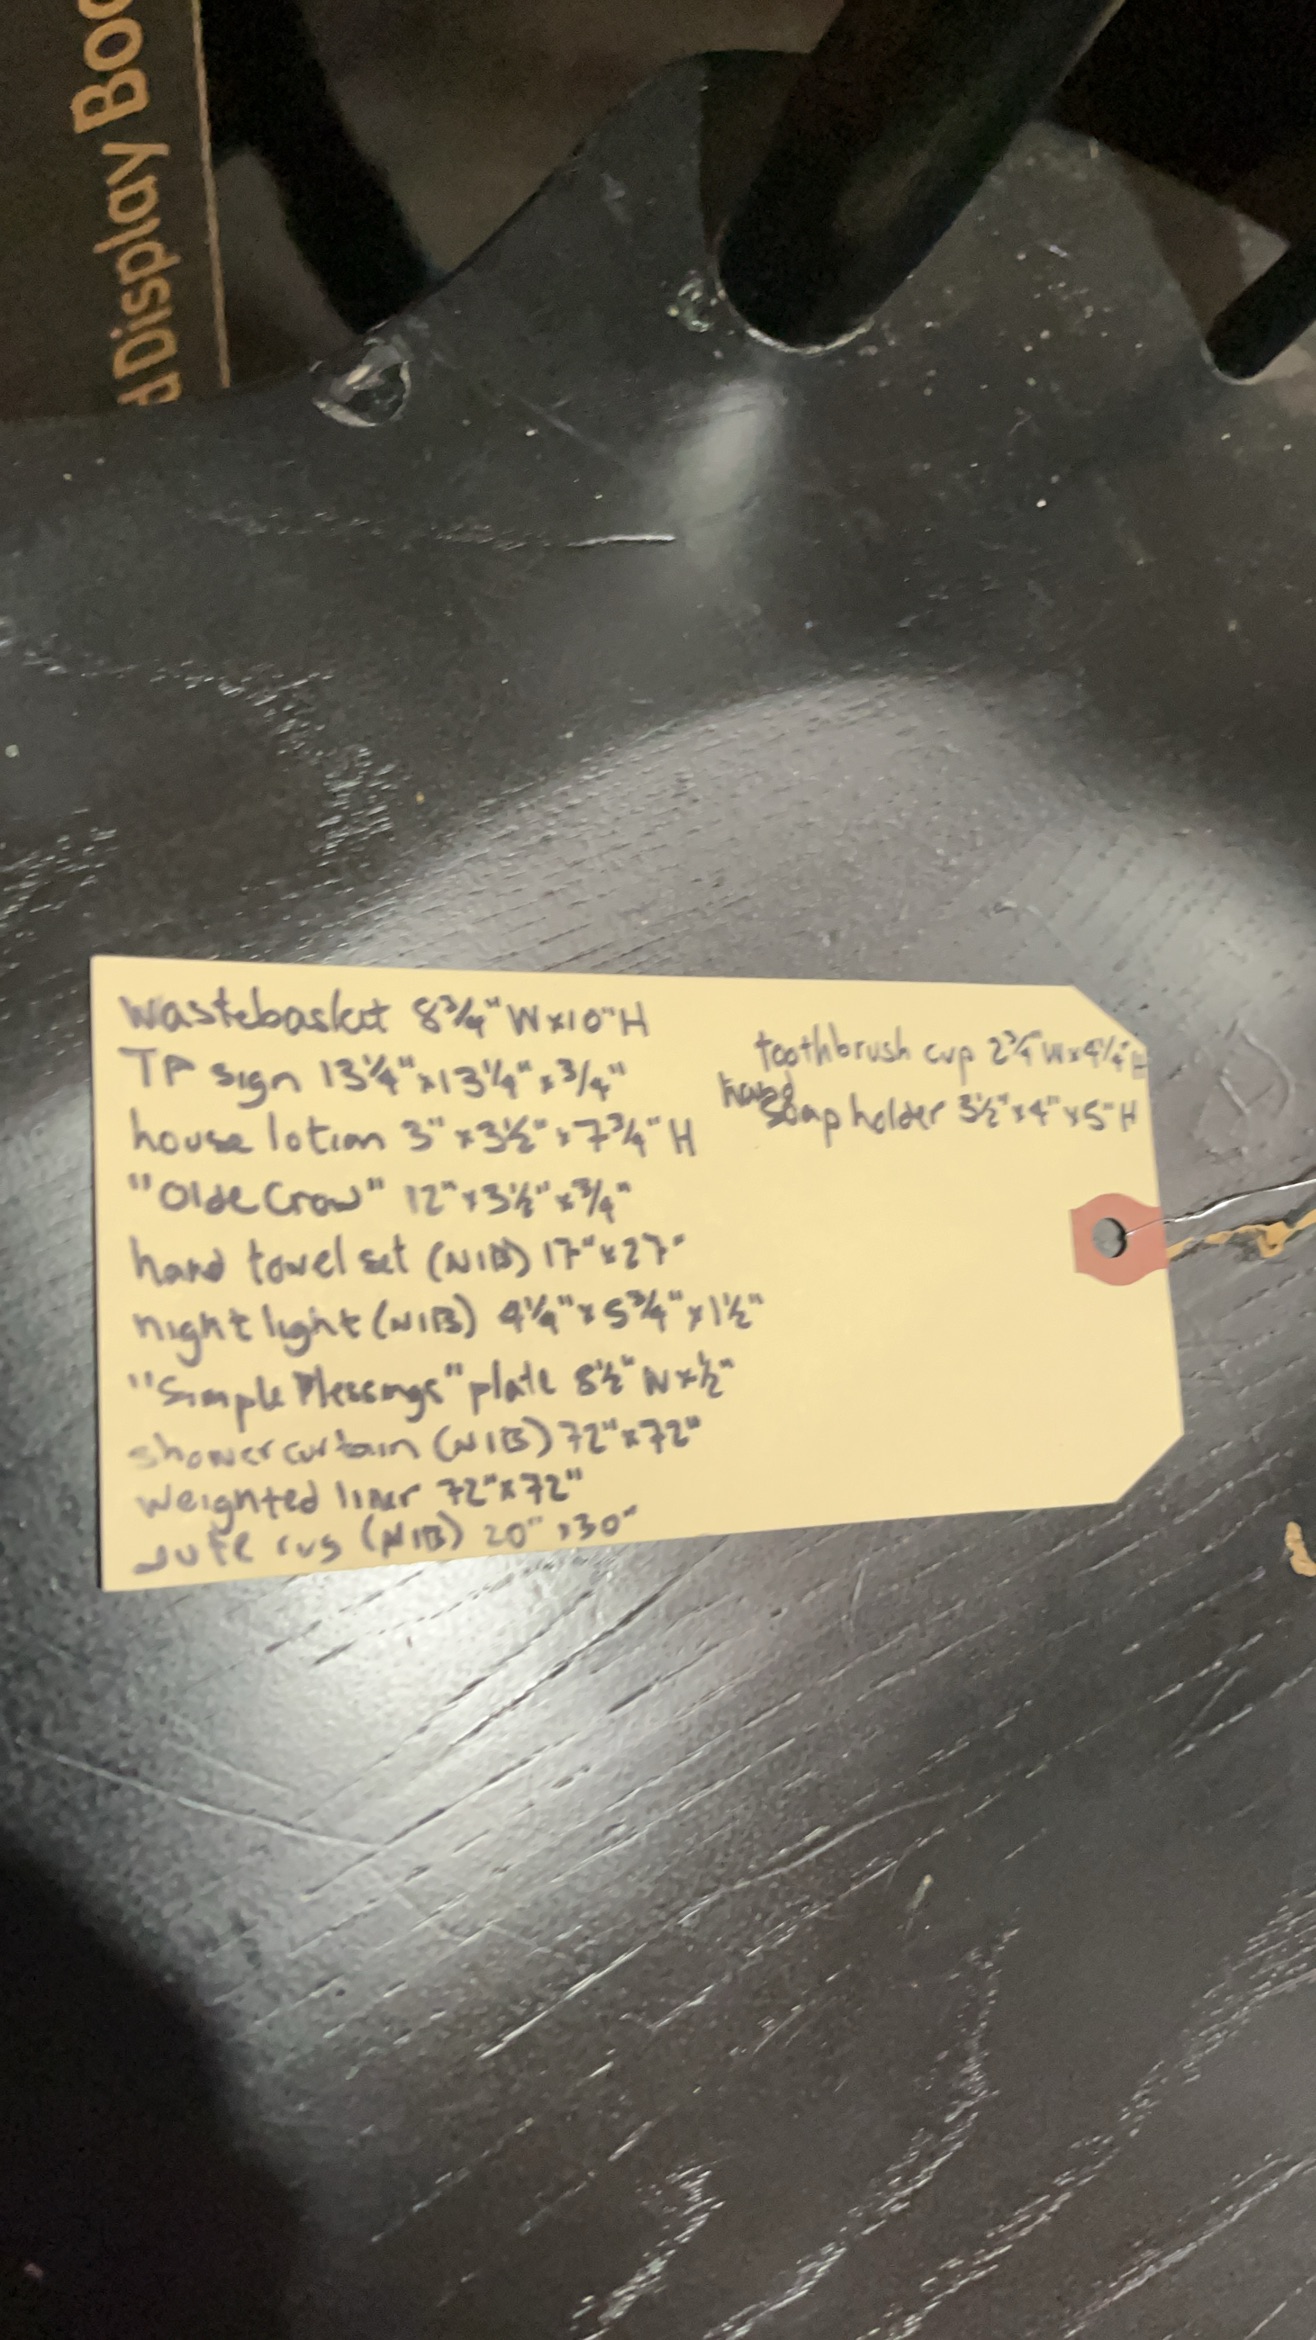 d Display Boo
wastebasket 8 3/4" W x 10" H
TP sign 13 1/4" x 13 1/4" x 3/4"
house lotion 3" x 3 1/2" x 7 3/4" H
"Olde Crow" 12" x 3 1/2" x 3/4"
hand towel set (NIB) 17" x 27"
night light (NIB) 4 1/4" x 5 3/4" x 1 1/2"
"Simple Blessings" plate 8 1/2" W x 1/2"
shower curtain (NIB) 72" x 72"
weighted liner 72" x 72"
Jute rug (NIB) 20" x 30"
toothbrush cup 2 3/4" W x 4 1/4" H
hand
soap holder 3 1/2" x 4" x 5" H